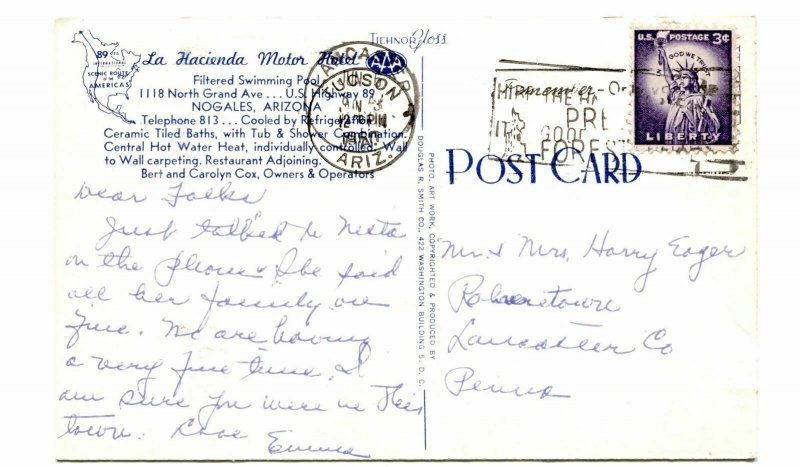 TICHNOR GLOSS
89
INTERNATIONAL
SCENIC ROUTE
OF THE
AMERICAS
La Hacienda Motor Hotel
AAA
Filtered Swimming Pool
1118 North Grand Ave... U.S. Highway 89
NOGALES, ARIZONA
Telephone 813... Cooled by Refrigeration
Ceramic Tiled Baths, with Tub & Shower Combination.
Central Hot Water Heat, individually controlled. Wall
to Wall carpeting. Restaurant Adjoining.
Bert and Carolyn Cox, Owners & Operators
TUCSON
ARIZ.
Dear Folks
Just talked to Neta
on the phone. She said
all her family are
fine. We are having
a very fine time. I
am sure you were in this
town. Love
Emma
PHOTO, ART WORK, COPYRIGHTED & PRODUCED BY
DOUGLAS R. SMITH CO., 422 WASHINGTON BUILDING 5, D. C.
Remember-Only
PRE
FOREST
U.S. POSTAGE 3¢
IN GOD WE TRUST
LIBERTY
POST CARD
Mr & Mrs. Harry Eager
Lancaster Co
Penna